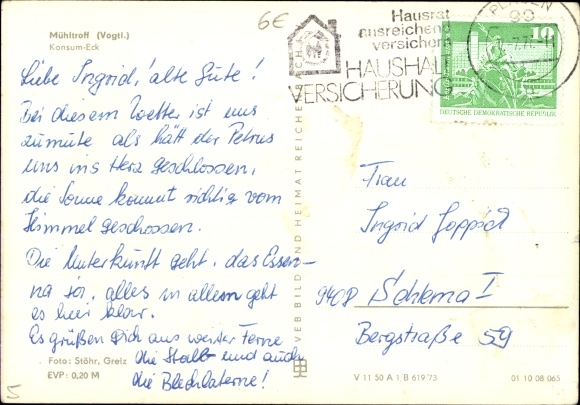 Mühltroff (Vogtl.)
Konsum-Eck
6€
Liebe Ingrid, alte Güte!
Bei diesem Wetter ist uns
zumute als hätt der Petrus
uns ins Herz geschlossen,
die Sonne kommt richtig vom
Himmel geschossen.
Die Unterkunft geht, das Essen –
na ja, alles in allem geht
es hier
Es grüßen Dich aus weiter Ferne
die und auch
die Blechlaterne!
Foto: Stöhr, Greiz
EVP: 0,20 M
5
VEB BILD UND HEIMAT REICHENBACH
Hausrat
ausreichend
versichern
HAUSHALT
VERSICHERUNG
PLAUEN
99
10
DEUTSCHE DEMOKRATISCHE REPUBLIK
Frau
Ingrid
9408 Schlema I
Bergstraße 59
V 11 50 A 1 B 619/73
01 10 08 065